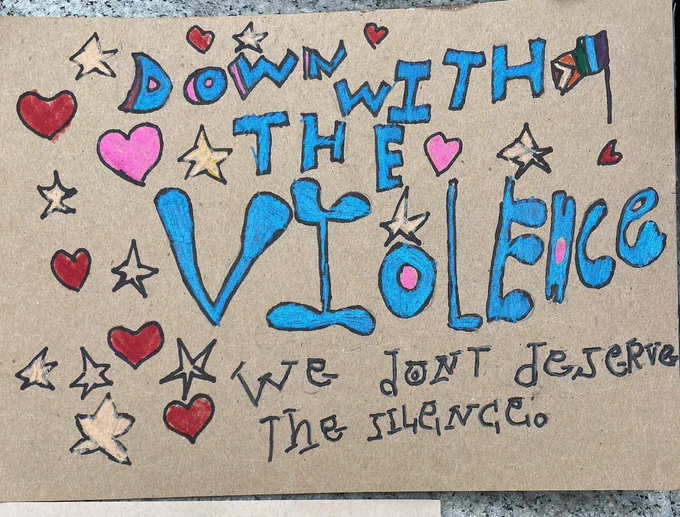 DOWN WITH
THE
VIOLENCE
We DONT DESERVE
The SILENCE.